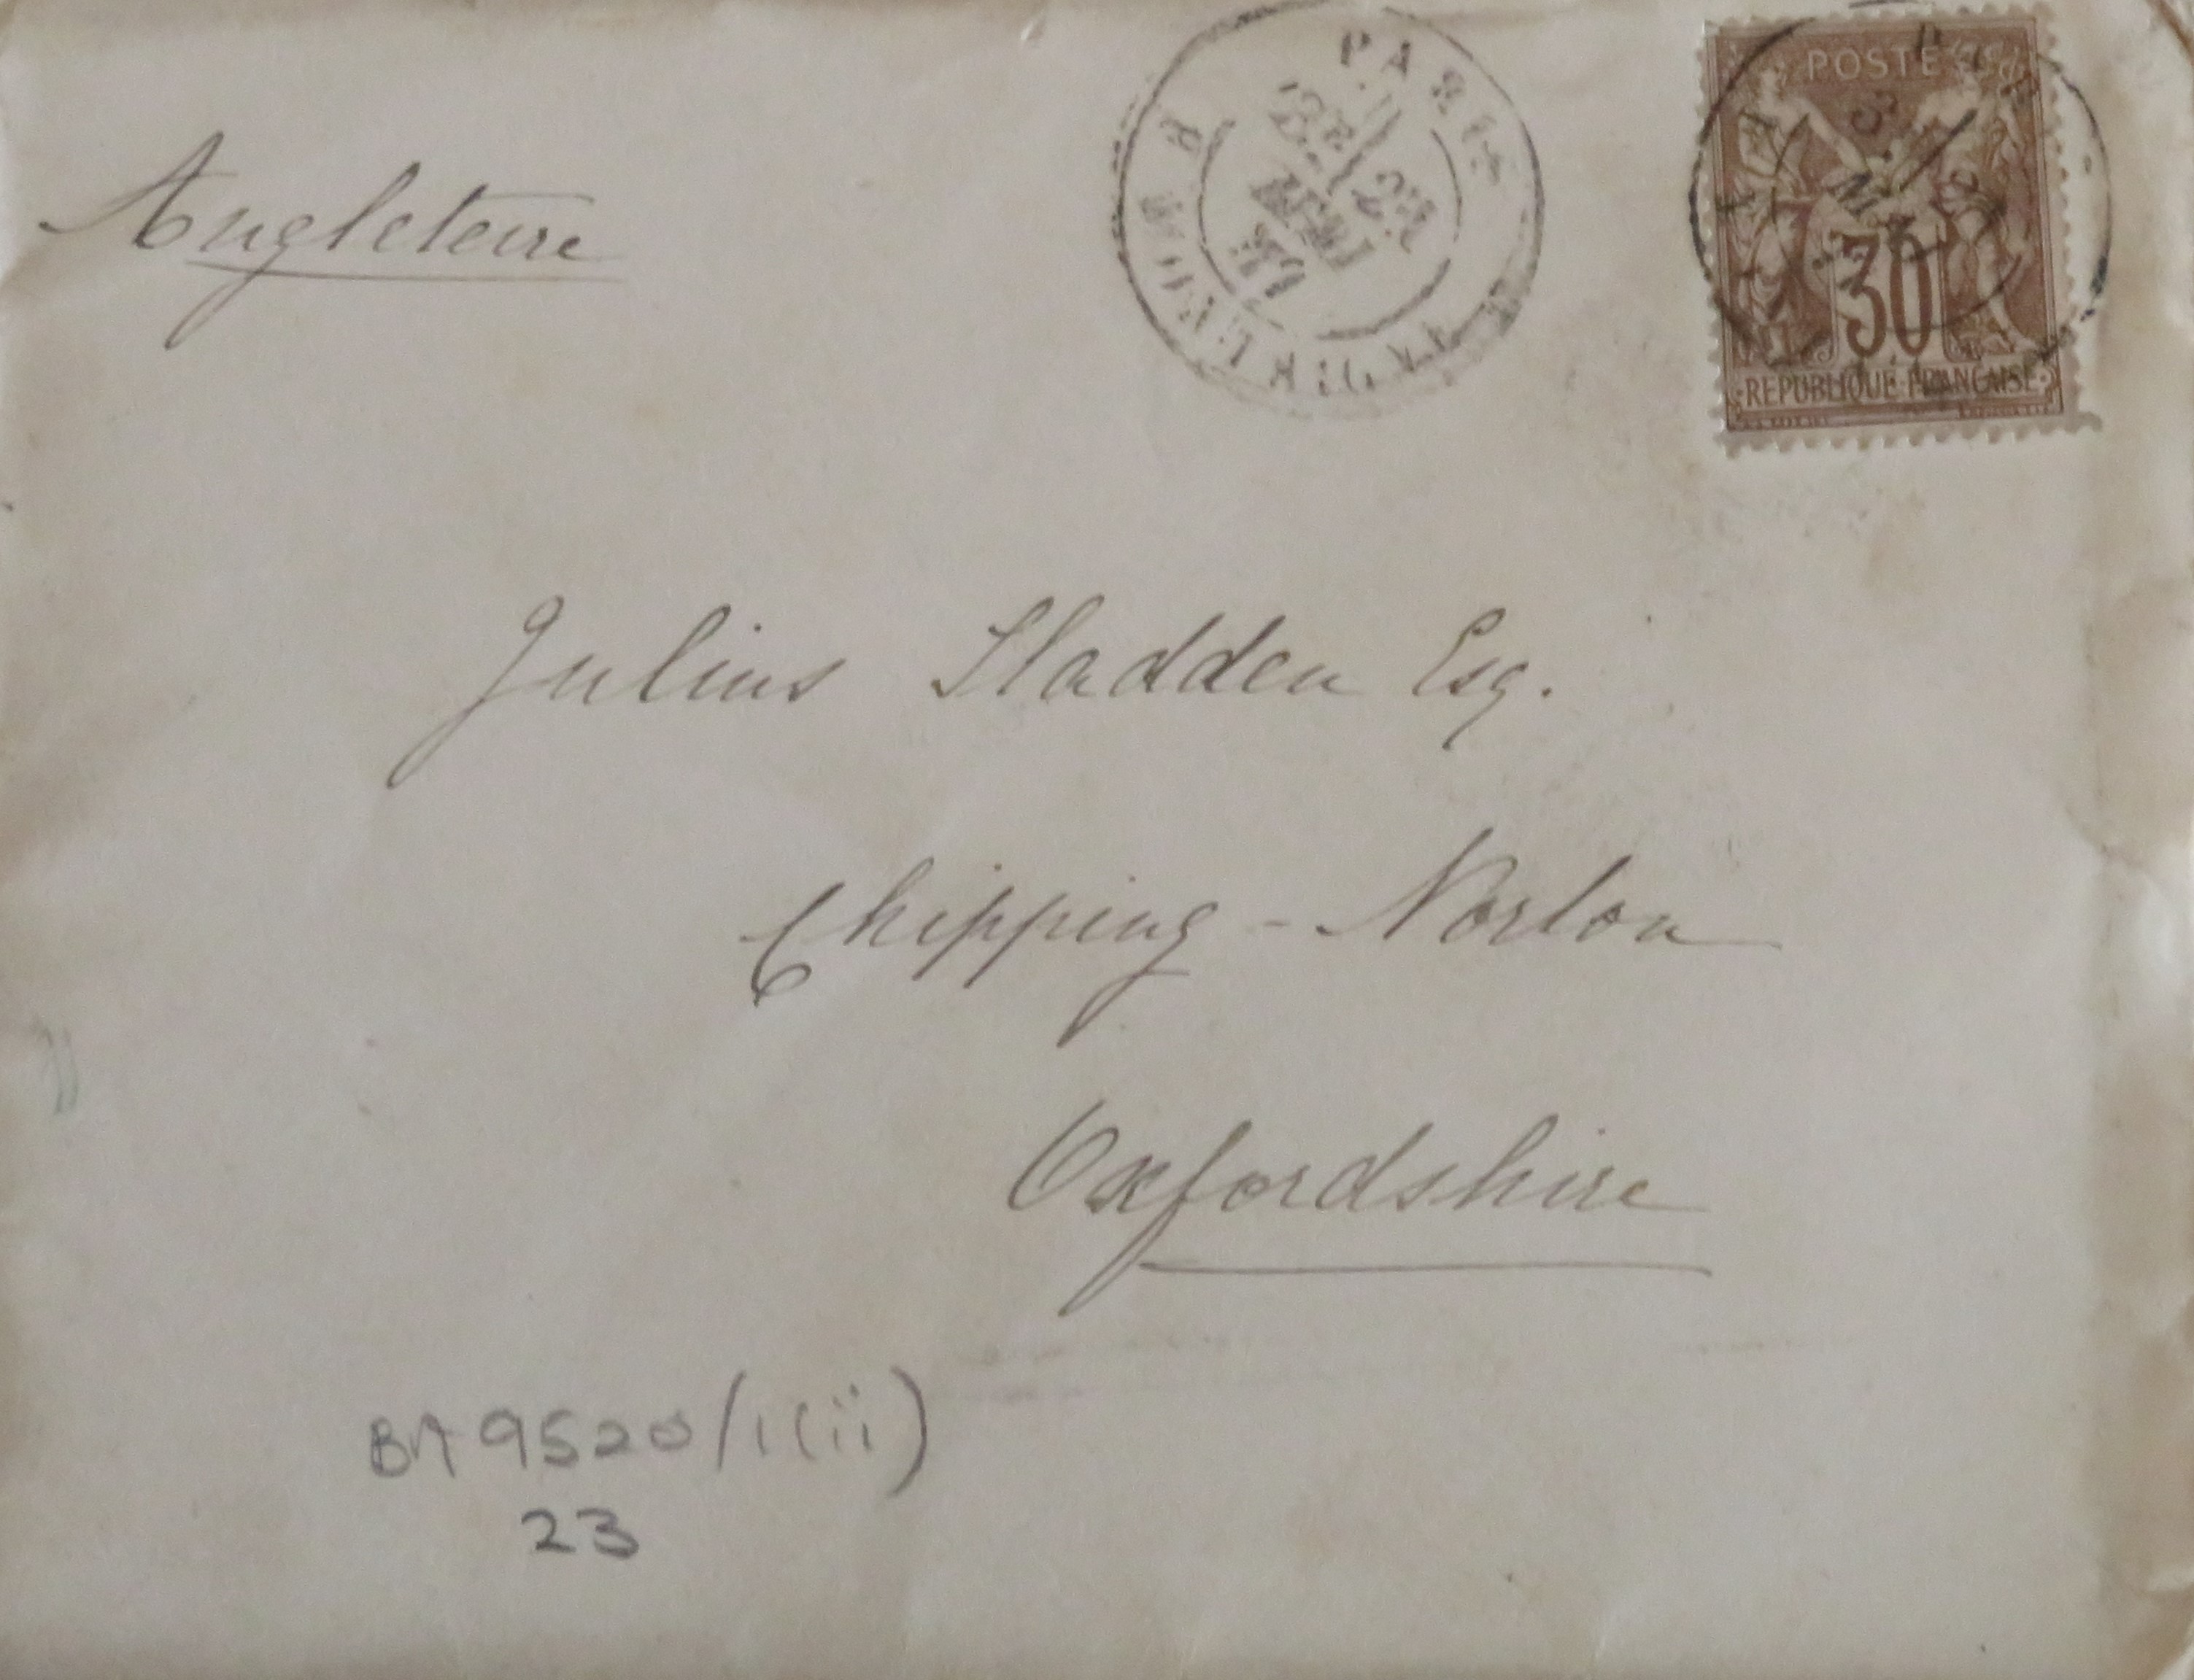 Angleterre
PARIS
POSTES
30
REPUBLIQUE FRANÇAISE
Julius Sladden Esq.
Chipping-Norton
Oxfordshire
BA 9520/1(ii)
23